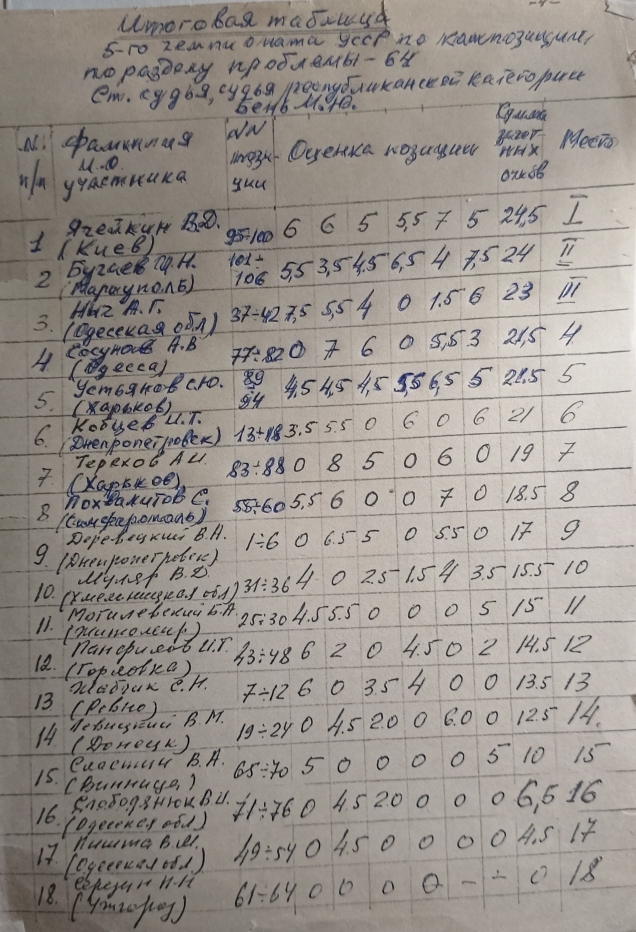 Итоговая таблица
5-го чемпионата УССР по композиции,
по разделу проблемы - 64
Ст. судья, судья республиканской категории
Бень М.Ю.
N: п/п Фамилия И.О. участника NN пози-ции Оценка позиции Сумма зачет-ных очков Место
1 Ячейкин В.Д. (Киев) 95÷100 6 6 5 5,5 7 5 24,5 I
2 Бугаев И.Н. (Мариуполь) 101÷106 5,5 3,5 4,5 6,5 4 7,5 24 II
3. Нич А.Г. (Одесская обл) 37÷42 7,5 5,5 4 0 1.5 6 23 III
4 Сосунов А.В (Одесса) 77÷82 0 7 6 0 5,5 3 21,5 4
5. Устьянов С.Ю. (Харьков) 89÷94 4,5 4,5 4,5 5,5 6,5 5 21.5 5
6. Кобцев И.Т. (Днепропетровск) 13÷18 3.5 5.5 0 6 0 6 21 6
7 Терехов А.И. (Харьков) 83÷88 0 8 5 0 6 0 19 7
8 Похвалитов С. (Симферополь) 55÷60 5.5 6 0 0 7 0 18.5 8
9 Деревецкий В.А. (Днепропетровск) 1÷6 0 6.5 5 0 5.5 0 17 9
10. Муляр В.Д. (Хмельницкая обл) 31÷36 4 0 2.5 1.5 4 3.5 15.5 10
11. Могилевский Б.А. (Житомир) 25÷30 4.5 5.5 0 0 0 5 15 11
12. Панфилов И.Т. (Горловка) 43÷48 6 2 0 4.5 0 2 14.5 12
13 С.Н. (Ровно) 7÷12 6 0 3.5 4 0 0 13.5 13
14 Левицкий В.М. (Донецк) 19÷24 0 4.5 2.0 0 6.0 0 12.5 14.
15. Сластин В.А. (Винница) 65÷70 5 0 0 0 0 5 10 15
16. Слободянюк В.И. (Одесская обл) 71÷76 0 4.5 2.0 0 0 0 6,5 16
17. Пишта В.М. (Одесская обл) 49÷54 0 4.5 0 0 0 0 4.5 17
18. Середин Н.Н (Ужгород) 61÷64 0 0 0 0 - - 0 18